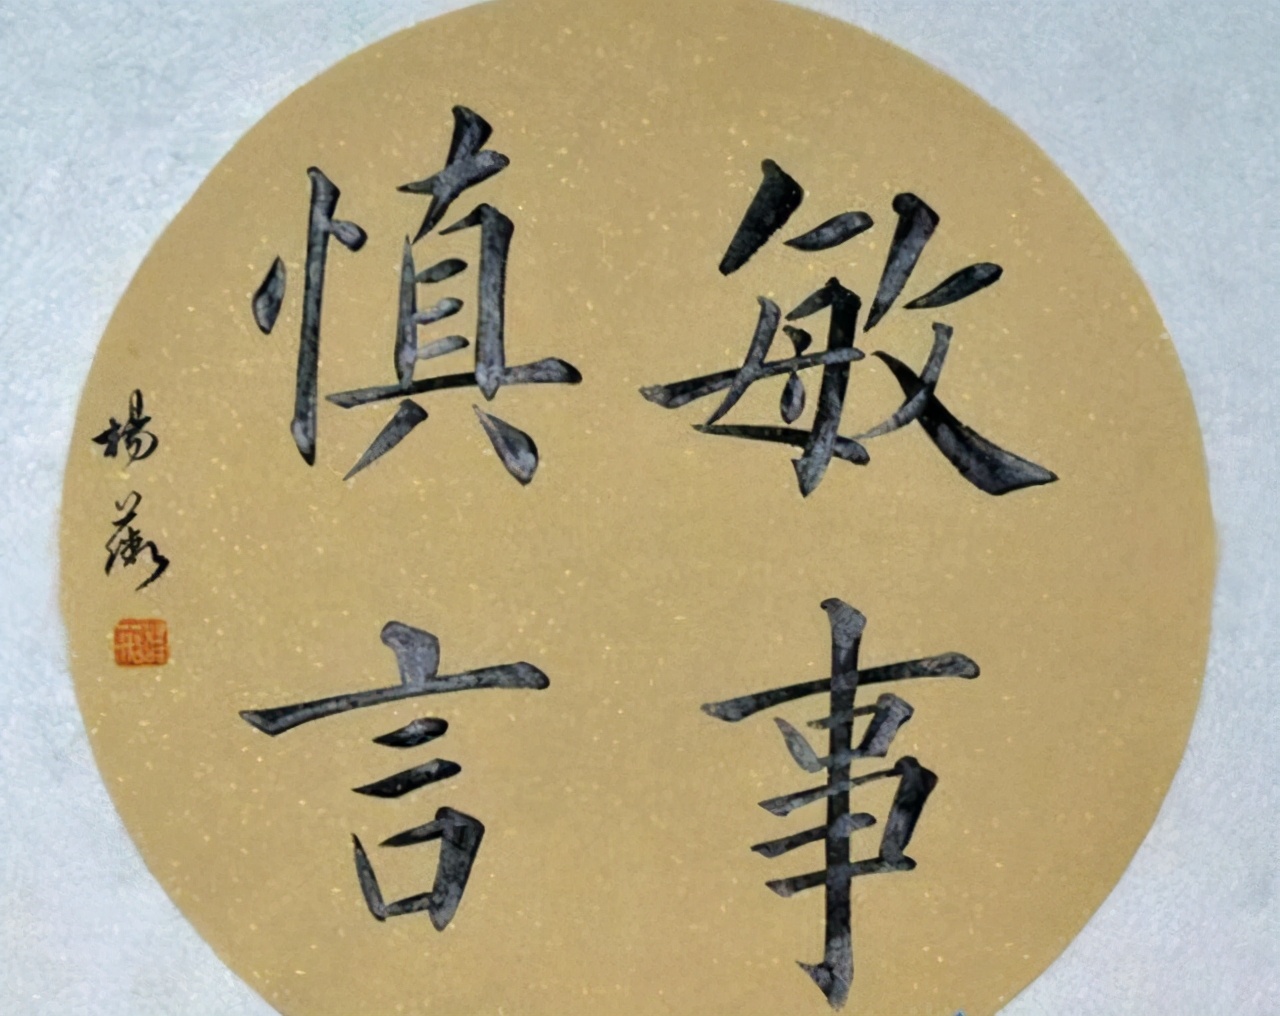 敏事
慎言
楊薇